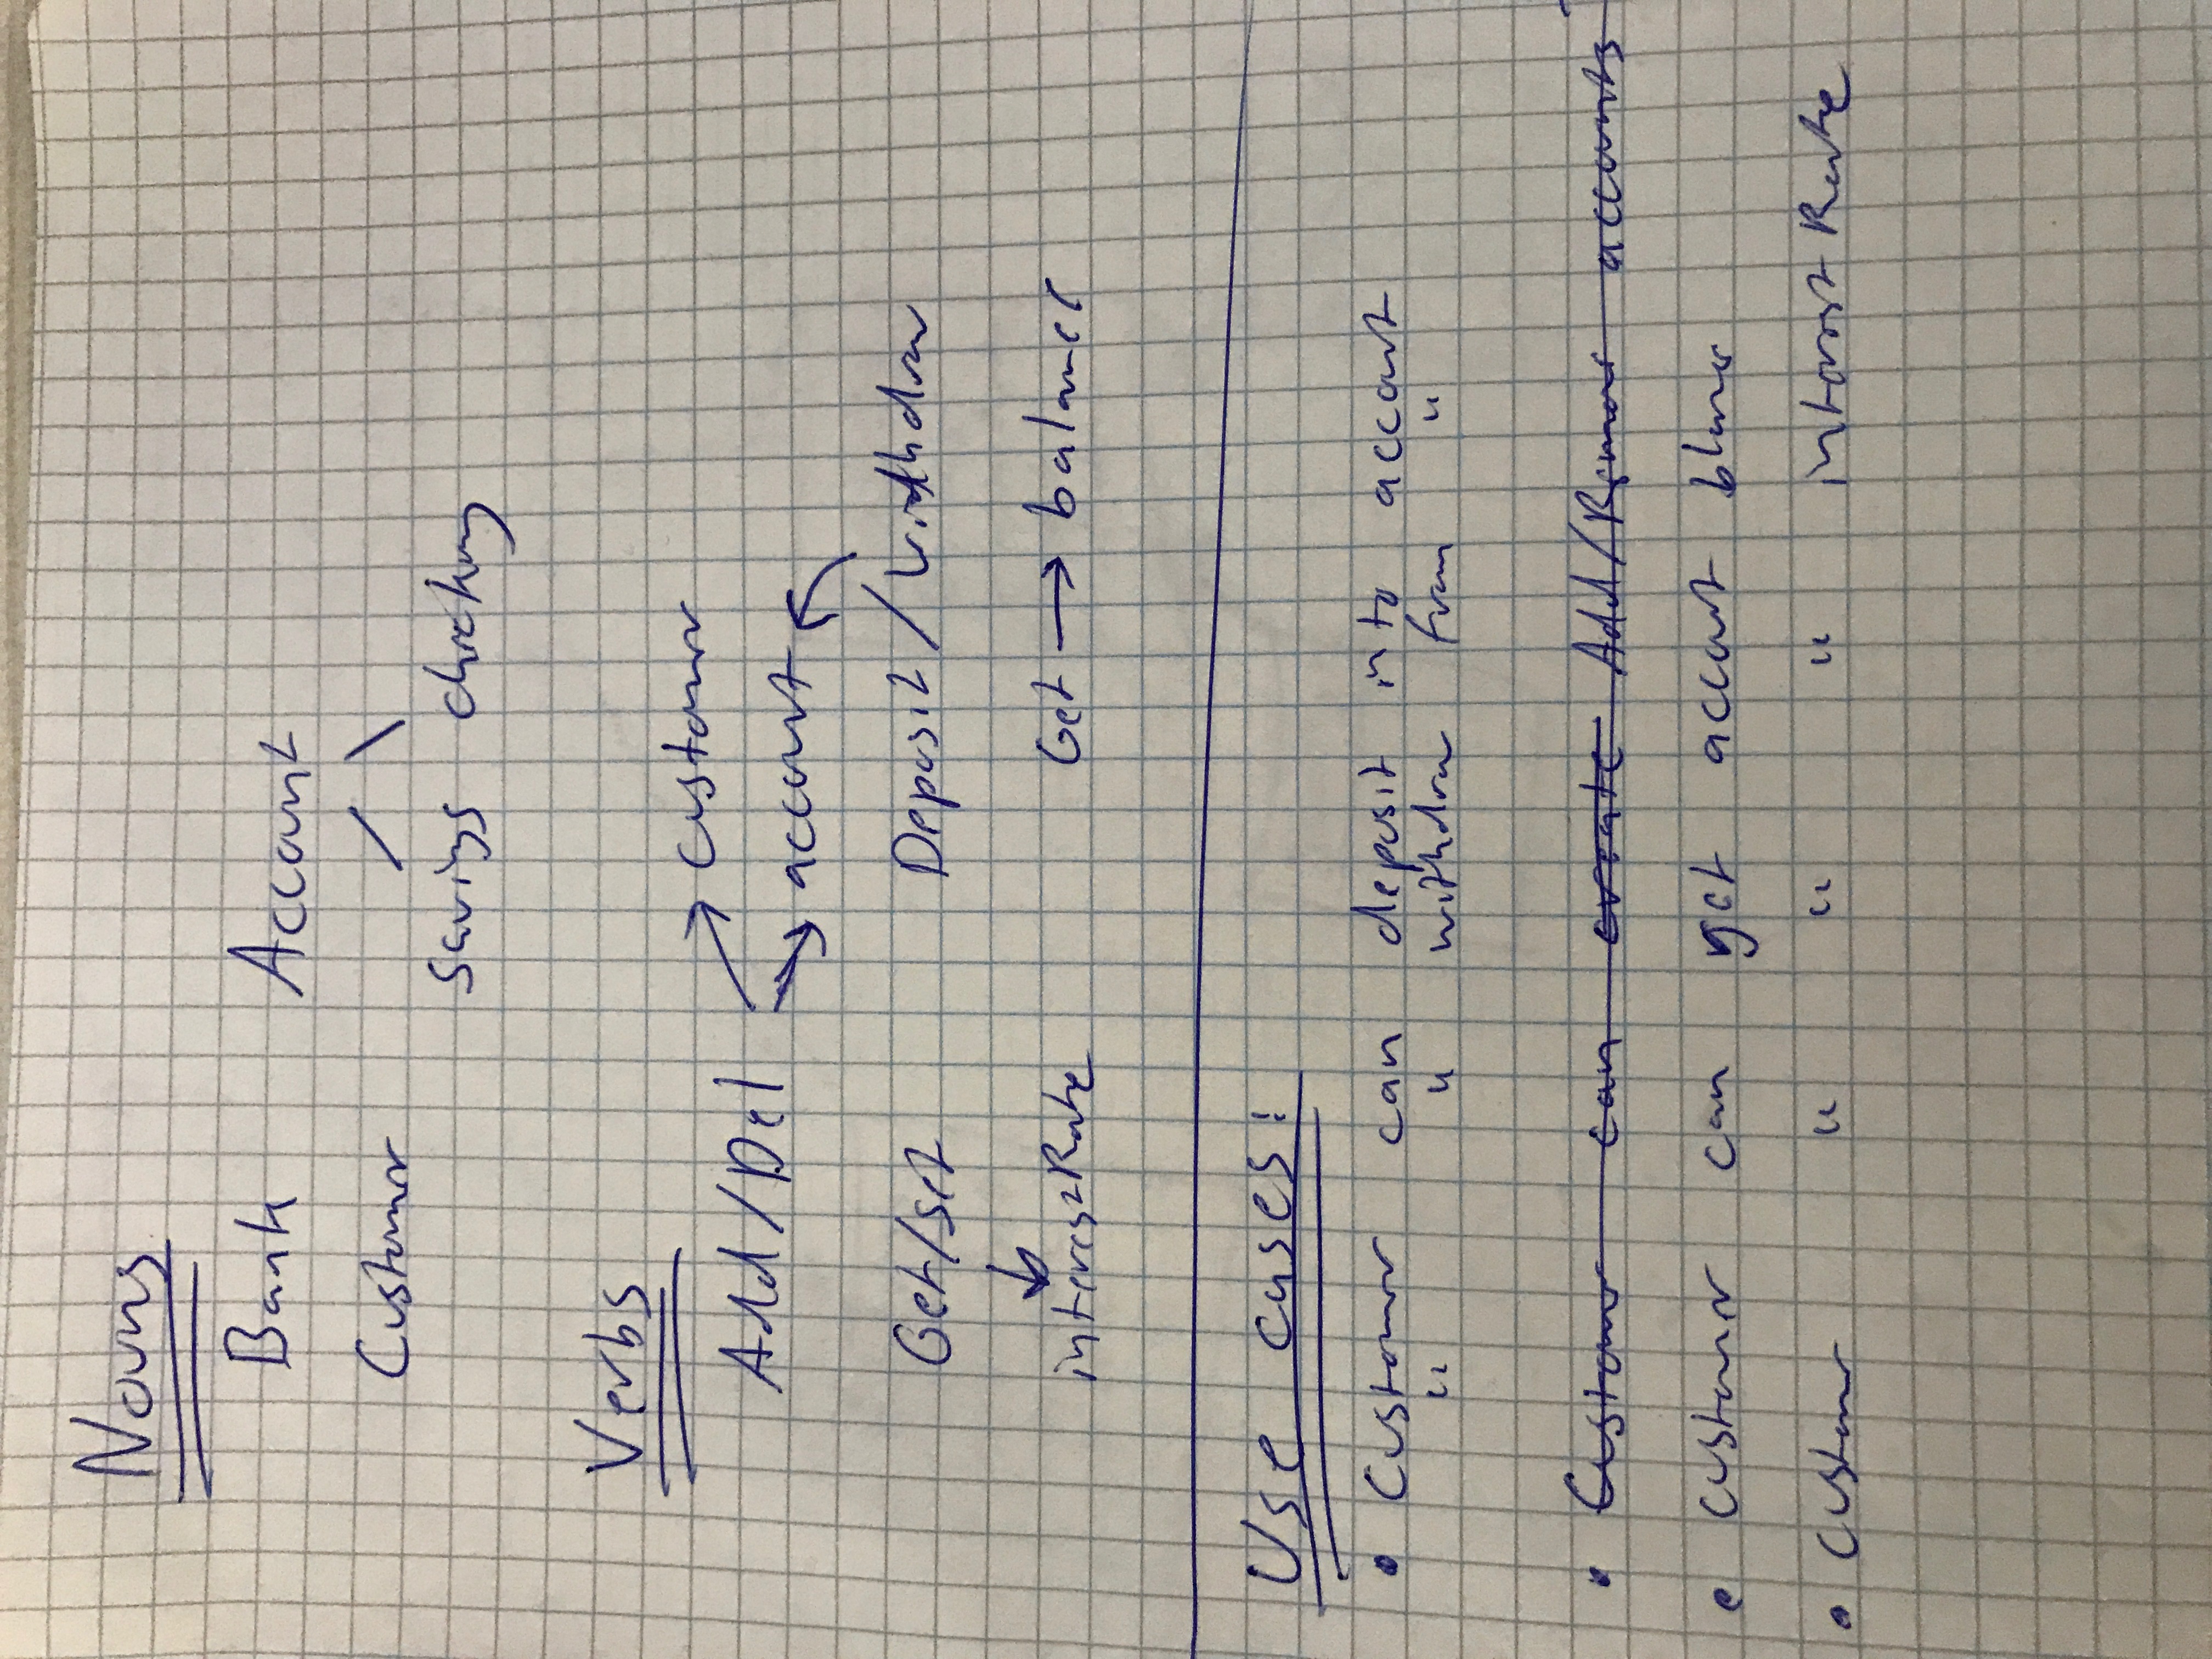 Nouns
Bank Account
Customer
Savings checking
Verbs
Add/Del customer
account
Get/set Deposit/withdraw
interestRate Get → balance
Use cases:
• Customer can deposit into account
" " withdraw from "
• Customer can create Add/Remove accounts
• customer can get account blance
• Customer " " " interest Rate